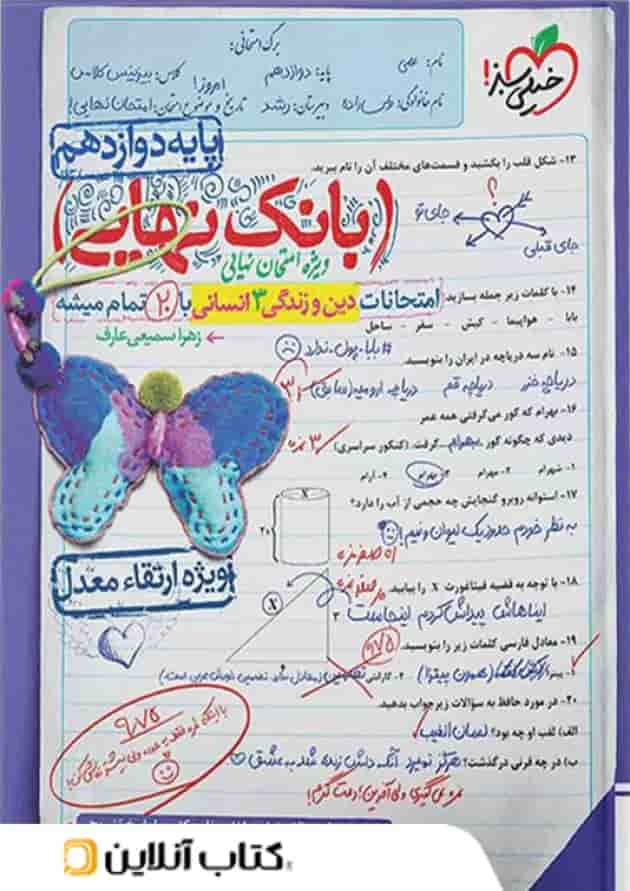 خیلی سبز!
برگ امتحانی:
نام:
پایه: دوازدهم
کلاس: بیزینس کلاس
امروز!
نام خانوادگی:
دبیرستان: رشد
تاریخ و موضوع امتحان: امتحان نهایی!
پایه دوازدهم
(بانک نهایی)
ویژه امتحان نهایی
امتحانات دین و زندگی ۳ انسانی با ۲۰ تمام میشه
زهرا سمیعی عارف
۱۳- شکل قلب را بکشید و قسمت‌های مختلف آن را نام ببرید.
؟
جای تو
جای قبلی
۱۴- با کلمات زیر جمله بسازید.
بابا - هواپیما - کیش - سفر - ساحل
#بابا_پول_ندارد
۱۵- نام سه دریاچه در ایران را بنویسید.
دریاچه خزر دریاچه قم دریاچه ارومیه (سابق)
۱۶- بهرام که گور می‌گرفتی همه عمر
دیدی که چگونه گور بهرام گرفت. (کنکور سراسری)
۱- شهرام ۲- مهرام ۳- بهرام ۴- آرام
۱۷- استوانه روبرو گنجایش چه حجمی از آب را دارد؟
X
۲۰
به نظر خودم حدود یک لیوان و نیم!
۱۸- با توجه به قضیه فیثاغورث X را بیابید.
ایناهاش پیداش کردم اینجاست
X
ویژه ارتقاء معدل
۱۹- معادل فارسی کلمات زیر را بنویسید.
۹/۷۵
۱- پیتزا (همون پیتزا) ۲- گارانتی
۲۰- در مورد حافظ به سؤالات زیر جواب بدهید.
الف) لقب او چه بود؟ لسان الغیب
ب) در چه قرنی درگذشت؟ هرگز نمیرد آنکه دلش زنده شد به عشق
۹/۷۵
کتاب آنلاین